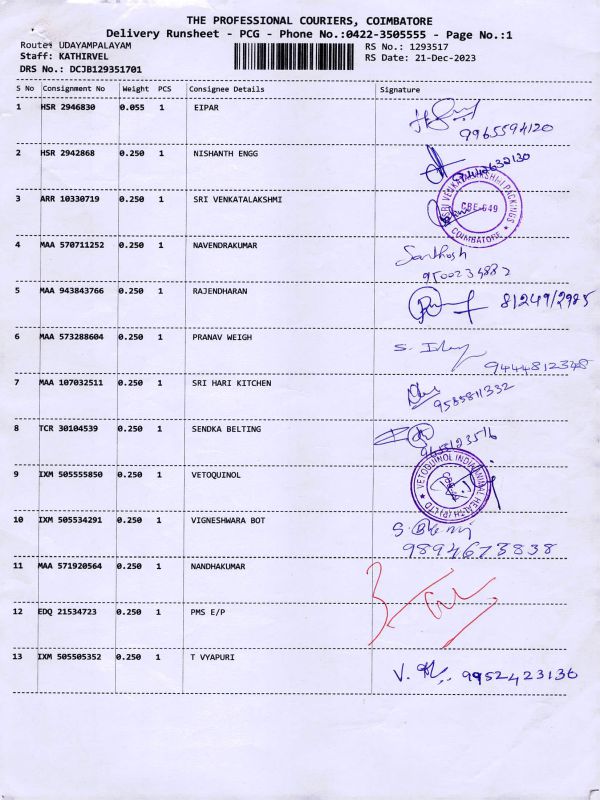 THE PROFESSIONAL COURIERS, COIMBATORE
Delivery Runsheet - PCG - Phone No.:0422-3505555 - Page No.:1
Route: UDAYAMPALAYAM
RS No.: 1293517
Staff: KATHIRVEL
RS Date: 21-Dec-2023
DRS No.: DCJB129351701
S No Consignment No Weight PCS Consignee Details Signature
1 HSR 2946830 0.055 1 EIPAR
9965594120
2 HSR 2942868 0.250 1 NISHANTH ENGG
3 ARR 10330719 0.250 1 SRI VENKATALAKSHMI
SRI VENKATALAKSHMI PACKINGS
CBE-649
COIMBATORE
4 MAA 570711252 0.250 1 NAVENDRAKUMAR
Santhosh
9500234882
5 MAA 943843766 0.250 1 RAJENDHARAN
8124912985
6 MAA 573288604 0.250 1 PRANAV WEIGH
9444812348
7 MAA 107032511 0.250 1 SRI HARI KITCHEN
9585811332
8 TCR 30104539 0.250 1 SENDKA BELTING
9655123516
9 IXM 505555850 0.250 1 VETOQUINOL
VETOQUINOL INDIA ANIMAL HEALTH (P) LTD
10 IXM 505534291 0.250 1 VIGNESHWARA BOT
9894673838
11 MAA 571920564 0.250 1 NANDHAKUMAR
12 EDQ 21534723 0.250 1 PMS E/P
13 IXM 505505352 0.250 1 T VYAPURI
9952423136